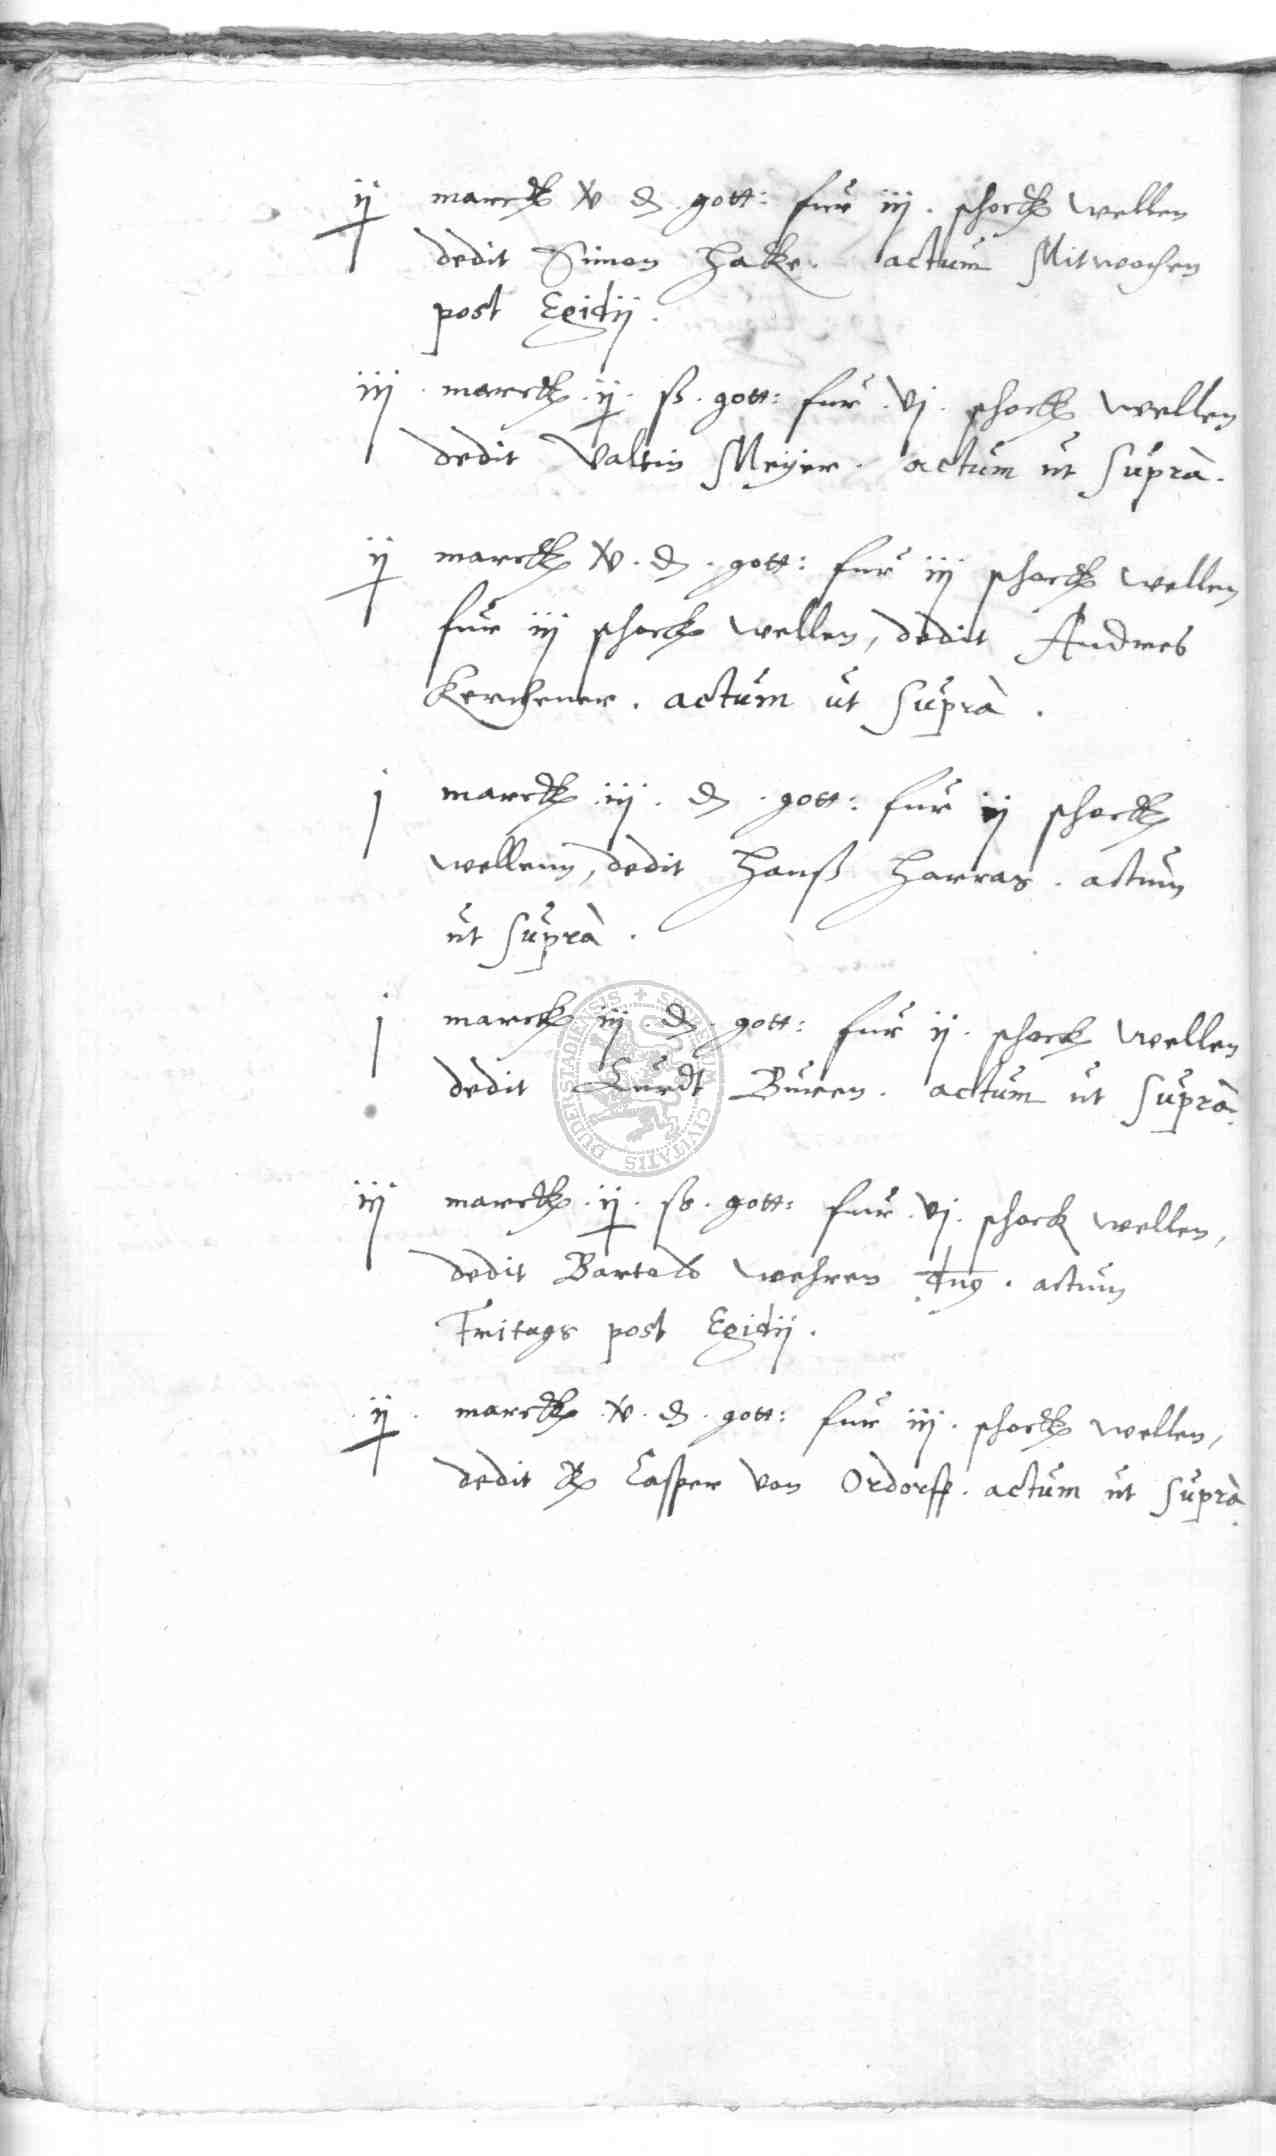 ij marck x ₰ gott: fur iij . schock wellen
dedit Simon Hacke . actum Mitwochen
post Egidij .
iij . marck . ij . ß . gott: fur . vj . schock wellen
dedit Valtin Meÿer . actum ut supra .
ij marck x . ₰ . gott: fur iij schock wellen
fur iij schock wellen, dedit Andres
Kerchener . actum ut supra .
j marck . iij . ₰ . gott: fur ij schock
wellenn, dedit Hanß Harras . actum
ut supra .
j marck iij . ₰ . gott: fur ij . schock wellen
dedit Curdt Buren . actum ut supra .
iij marck . ij . ß . gott: fur . vj . schock wellen,
dedit Bartold wehren . actum
Fritags post Egidij .
. ij . marck . x . ₰ . gott: fur iij . schock wellen,
dedit Casper von Ordorff . actum ut supra
SIGILLUM CIVITATIS DUDERSTADIENSIS